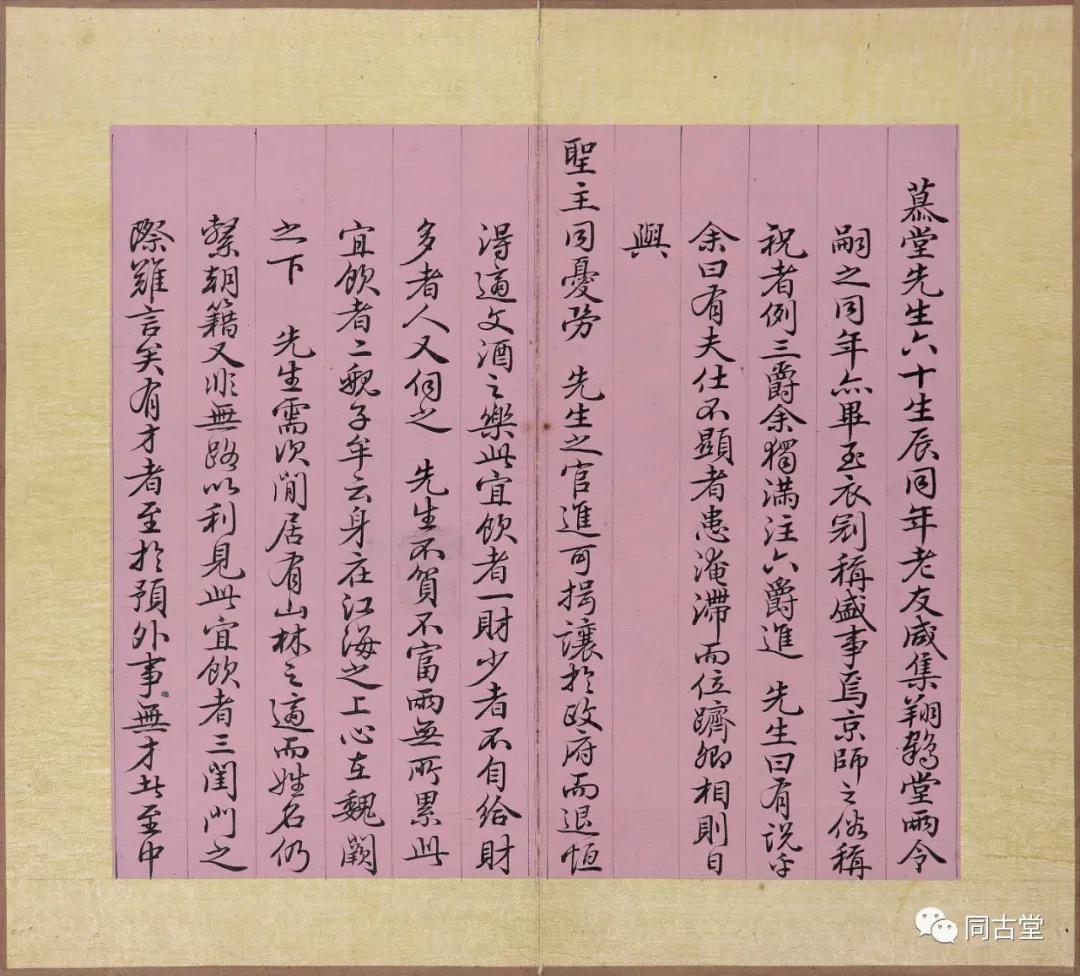 慕堂先生六十生辰同年老友咸集翔鶴堂兩令
嗣之同年亦畢至衣冠稱盛事焉京師之俗稱
祝者例三爵余獨滿注六爵進 先生曰有說乎
余曰有夫仕不顯者患淹滯而位躋卿相則日
與
聖主同憂勞 先生之官進可揖讓於政府而退恒
得適文酒之樂此宜飲者一財少者不自給財
多者人又伺之 先生不貧不富兩無所累此
宜飲者二魏子牟云身在江海之上心在魏闕
之下 先生需次閒居有山林之適而姓名仍
繫朝籍又非無路以利見此宜飲者三閨門之
際難言矣有才者至於預外事無才者至中
同古堂